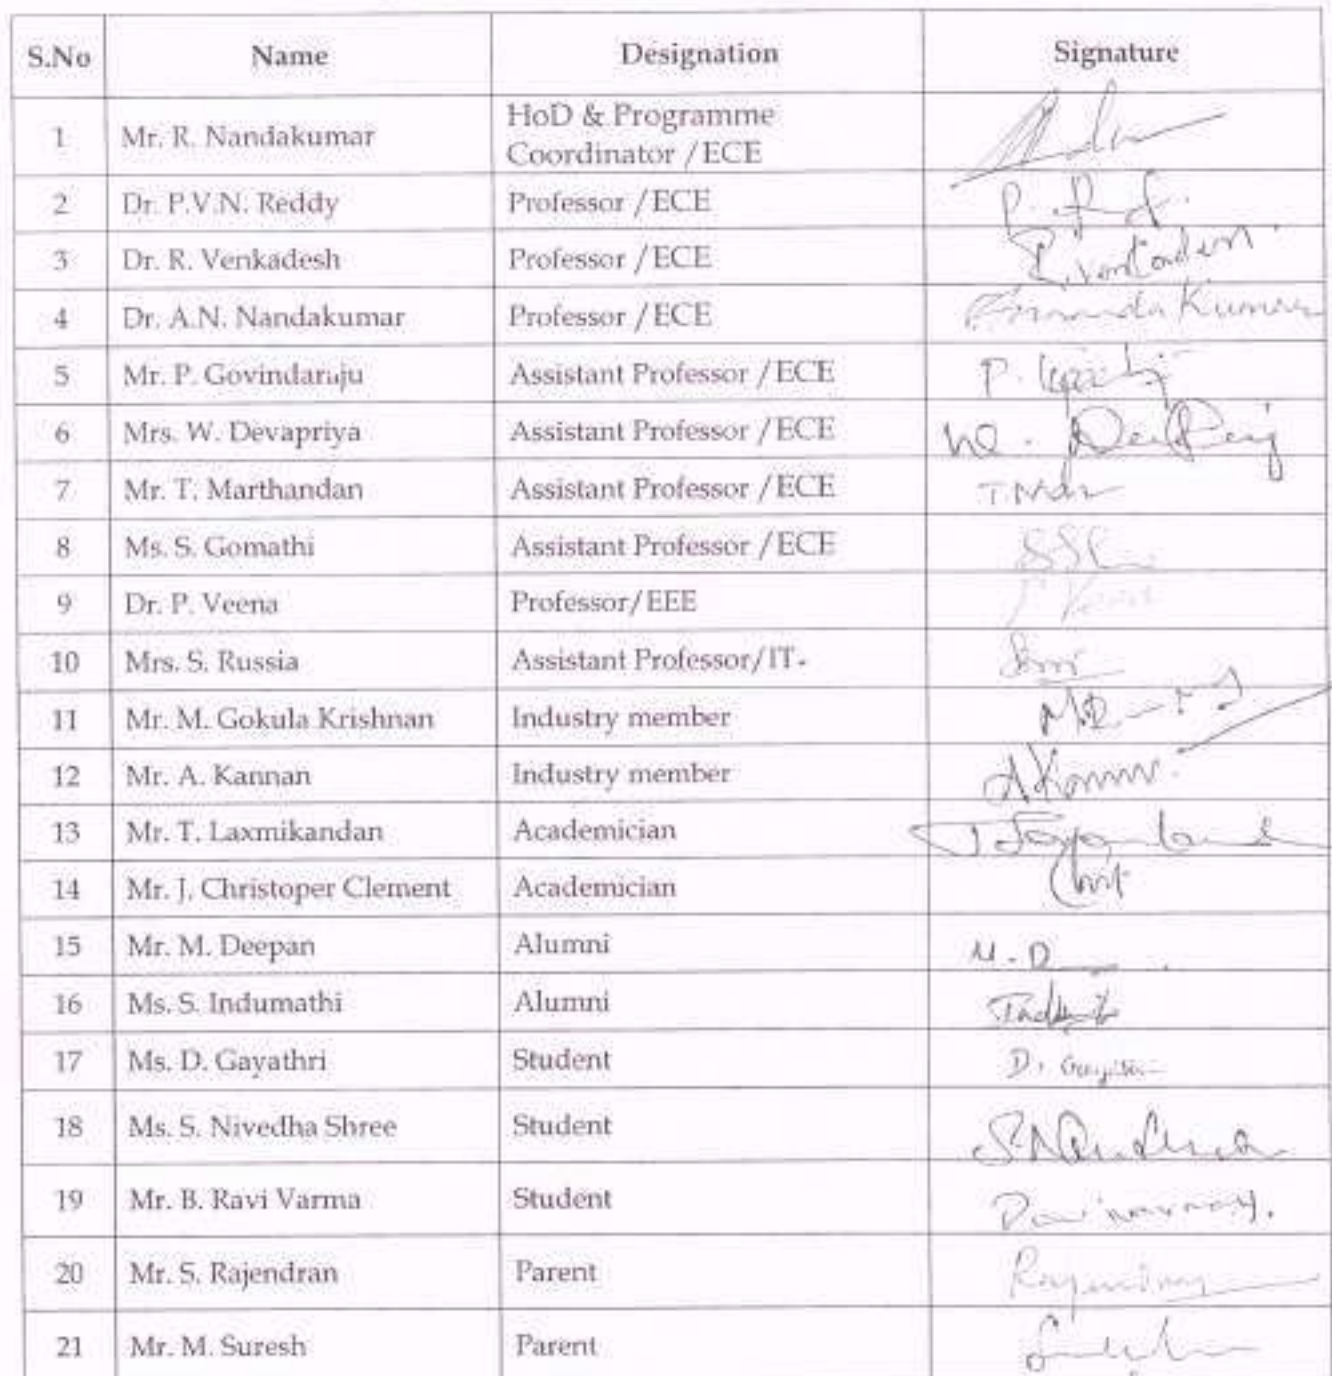 S.No Name Designation Signature
1 Mr. R. Nandakumar HoD & Programme
Coordinator / ECE
2 Dr. P.V.N. Reddy Professor / ECE
3 Dr. R. Venkadesh Professor / ECE
4 Dr. A.N. Nandakumar Professor / ECE
5 Mr. P. Govindaraju Assistant Professor / ECE
6 Mrs. W. Devapriya Assistant Professor / ECE
7 Mr. T. Marthandan Assistant Professor / ECE
8 Ms. S. Gomathi Assistant Professor / ECE
9 Dr. P. Veena Professor/EEE
10 Mrs. S. Russia Assistant Professor/IT
11 Mr. M. Gokula Krishnan Industry member
12 Mr. A. Kannan Industry member
13 Mr. T. Laxmikandan Academician
14 Mr. J. Christoper Clement Academician
15 Mr. M. Deepan Alumni M.D
16 Ms. S. Indumathi Alumni
17 Ms. D. Gayathri Student
18 Ms. S. Nivedha Shree Student
19 Mr. B. Ravi Varma Student
20 Mr. S. Rajendran Parent
21 Mr. M. Suresh Parent